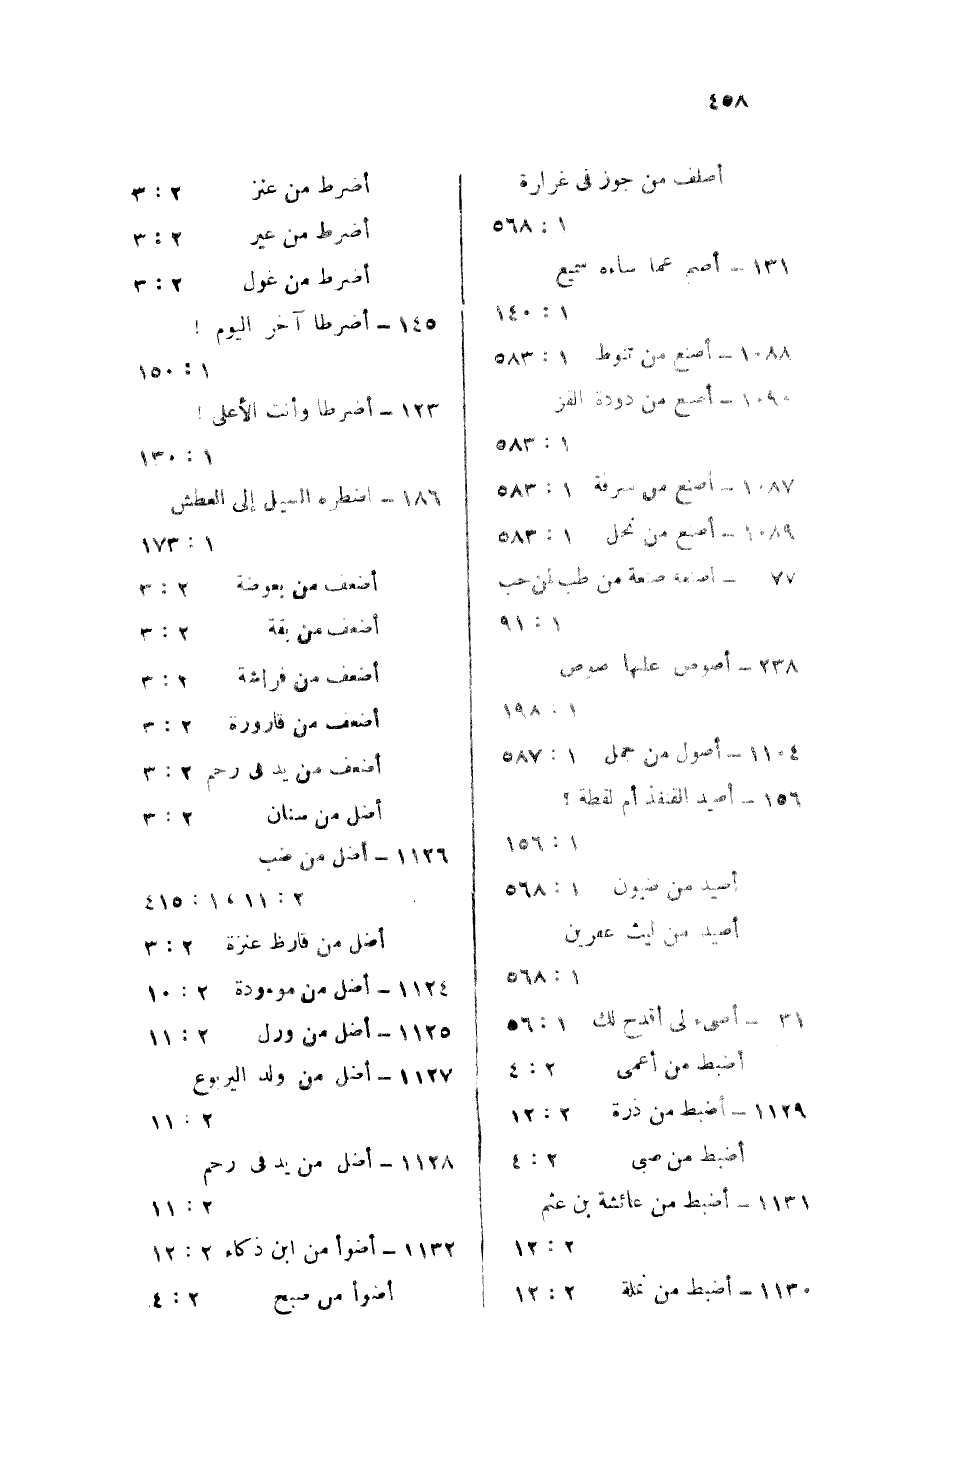 ٤٥٨
أصلف من جوز فى غرارة
١ : ٥٦٨
١٣١ – أصم عما ساءه سميع
١ : ١٤٠
١٠٨٨ – أصنع من تنوط ١ : ٥٨٣
١٠٩٠ – أصنع من دودة القز
١ : ٥٨٣
١٠٨٧ – أصنع من سرفة ١ : ٥٨٣
١٠٨٩ – أصنع من نحل ١ : ٥٨٣
٧٧ – اصنعه صنعة من طب لمن حب
١ : ٩١
٢٣٨ – أصوص عليها صوص
١ : ١٩٨
١١٠٤ – أصول من جمل ١ : ٥٨٧
١٥٦ – أصيد القنفذ أم لقطة ؟
١ : ١٥٦
أصيد من ضيون ١ : ٥٦٨
أصيد من ليث عفرين
١ : ٥٦٨
٣١ – أضىء لى أقدح لك ١ : ٥٦
أضبط من أعمى ٢ : ٤
١١٢٩ – أضبط من ذرة ٢ : ١٢
أضبط من صبى ٢ : ٤
١١٣١ – أضبط من عائشة بن عثم
٢ : ١٢
١١٣٠ – أضبط من نملة ٢ : ١٢
أضرط من عنز ٢ : ٣
أضرط من عير ٢ : ٣
أضرط من غول ٢ : ٣
١٤٥ – أضرطا آخر اليوم !
١ : ١٥٠
١٢٣ – أضرطا وأنت الأعلى !
١ : ١٣٠
١٨٦ – اضطره السيل إلى العطش
١ : ١٧٣
أضعف من بعوضة ٢ : ٣
أضعف من بقة ٢ : ٣
أضعف من فراشة ٢ : ٣
أضعف من قارورة ٢ : ٣
أضعف من يد فى رحم ٢ : ٣
أضل من سنان ٢ : ٣
١١٢٦ – أضل من ضب
٢ : ١١ ، ١ : ٤١٥
أضل من قارظ عنزة ٢ : ٣
١١٢٤ – أضل من موءودة ٢ : ١٠
١١٢٥ – أضل من ورل ٢ : ١١
١١٢٧ – أضل من ولد اليربوع
٢ : ١١
١١٢٨ – أضل من يد فى رحم
٢ : ١١
١١٣٢ – أضوأ من ابن ذكاء ٢ : ١٢
أضوأ من صبح ٢ : ٤